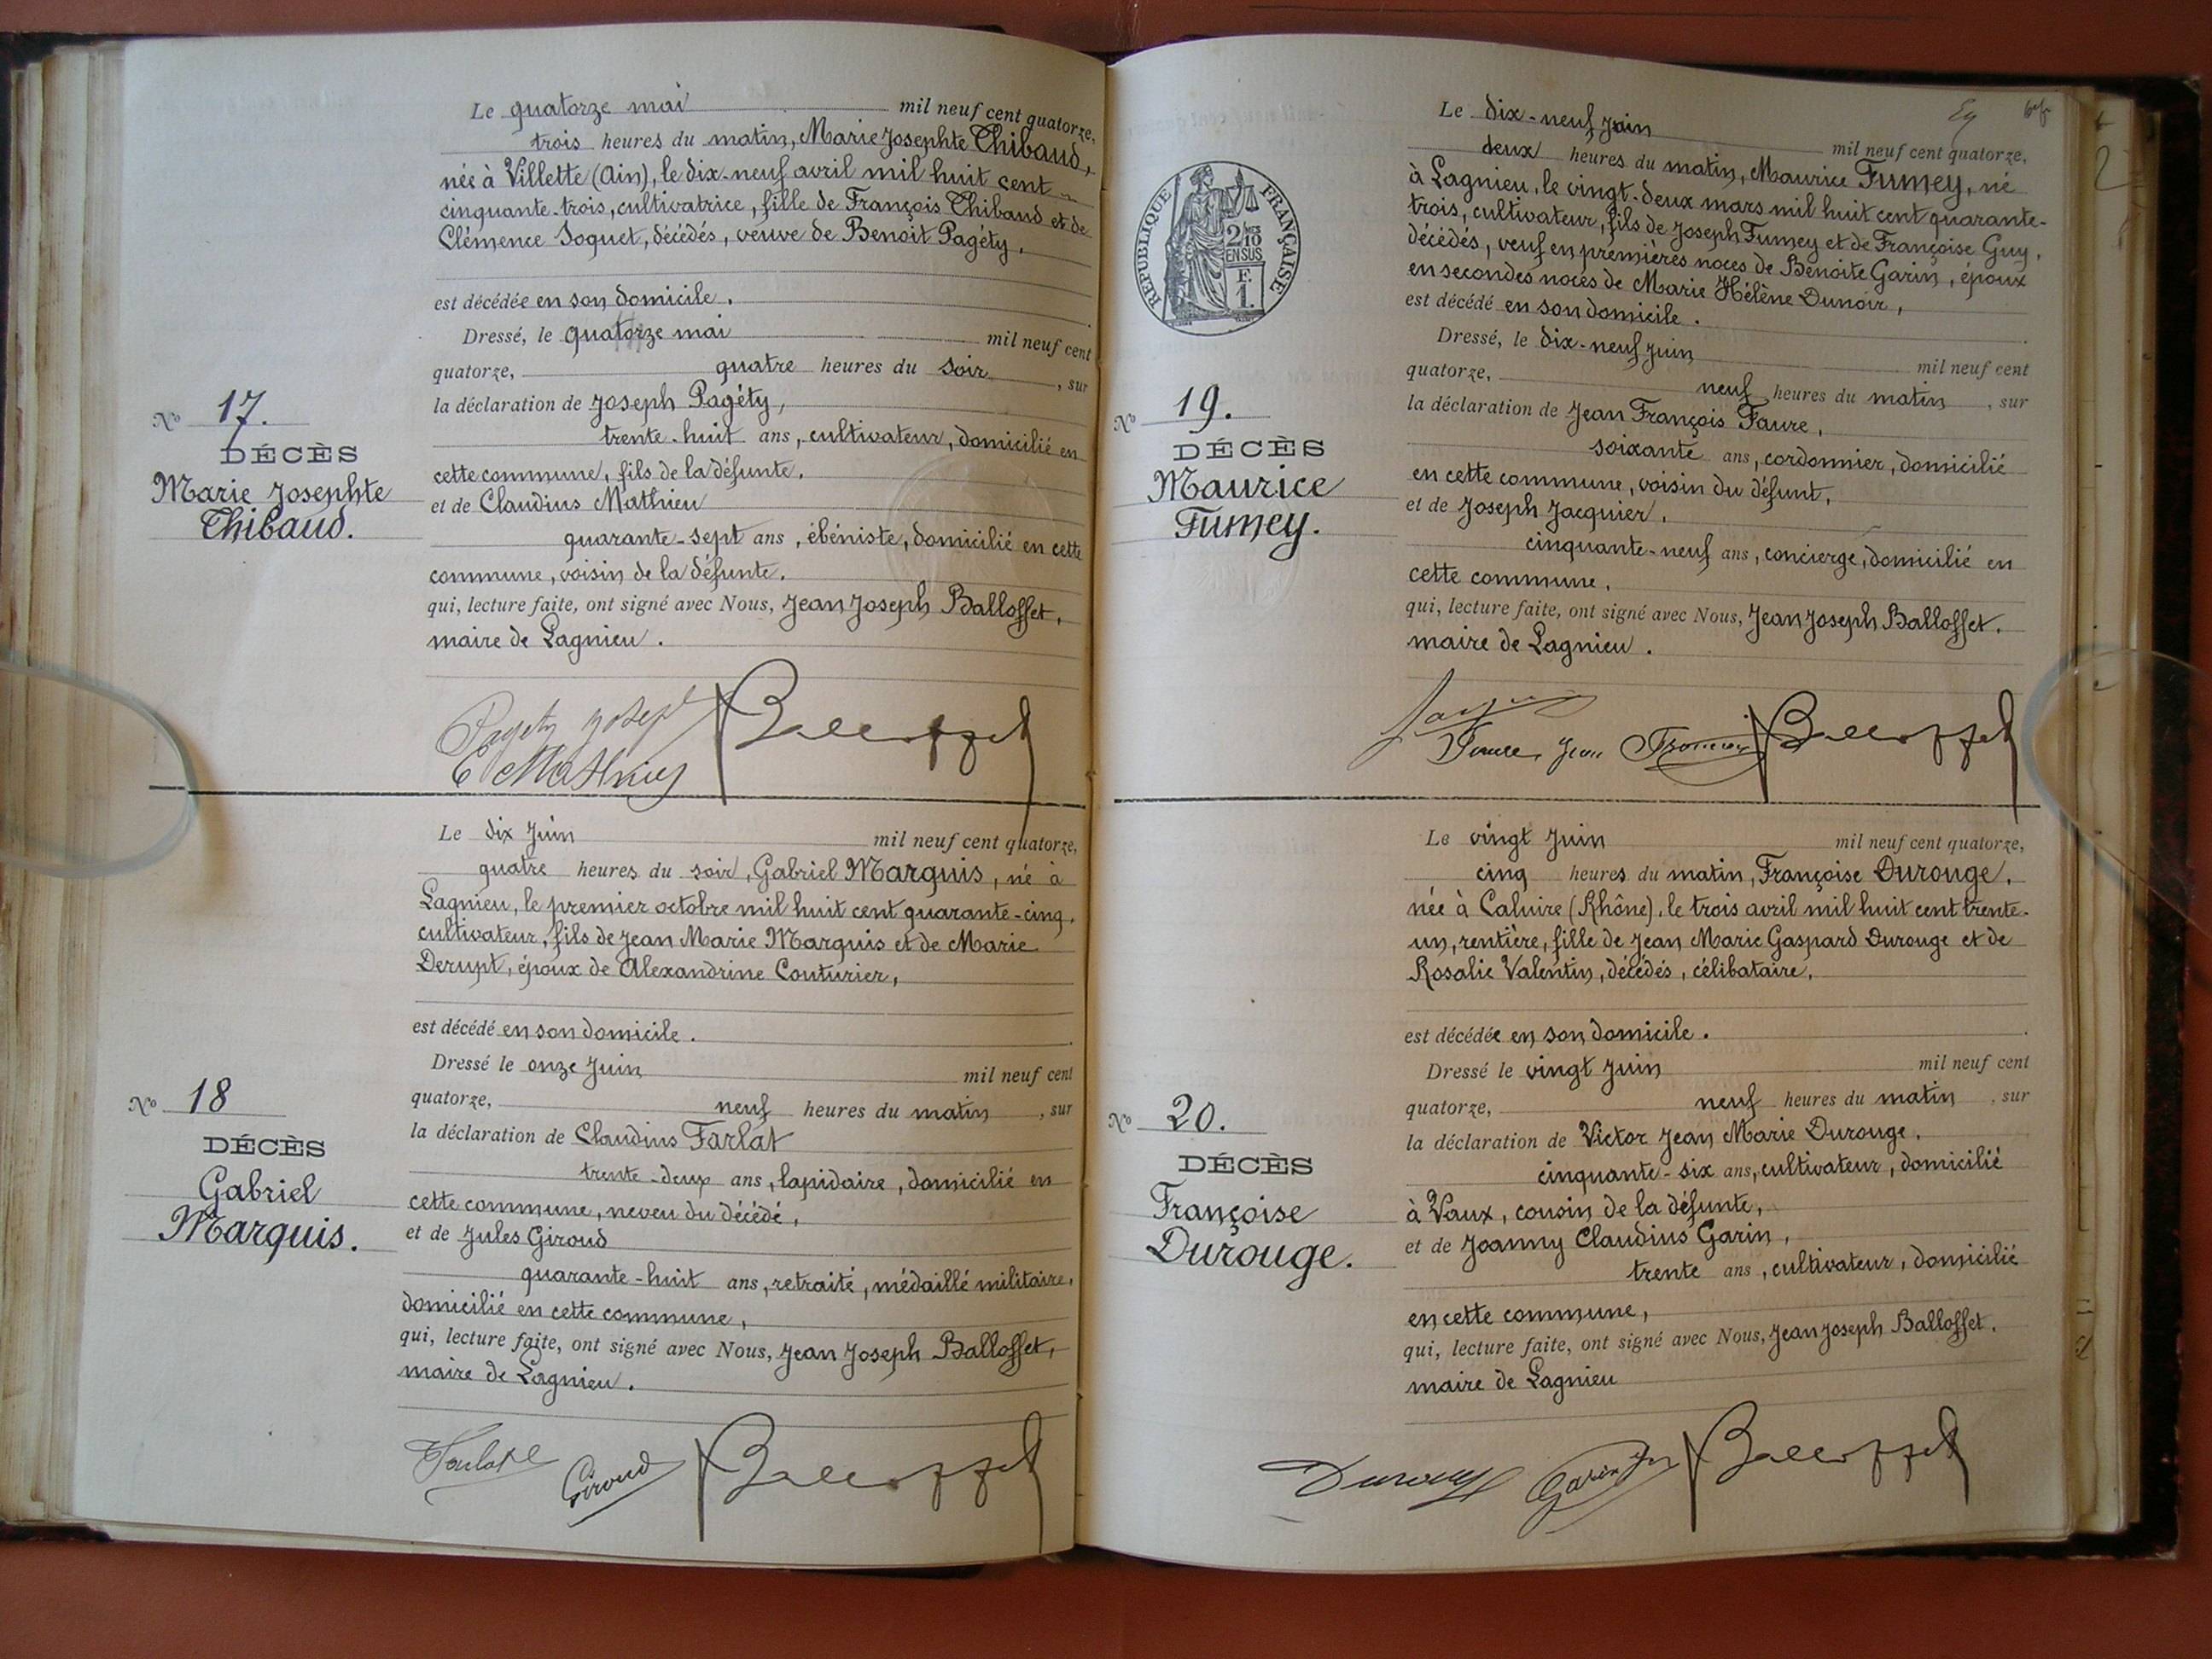 Le quatorze mai mil neuf cent quatorze,
trois heures du matin, Marie Josephte Thibaud,
née à Villette (Ain), le dix-neuf avril mil huit cent
cinquante-trois, cultivatrice, fille de François Thibaud et de
Clémence Soquet, décédés, veuve de Benoit Pagéty,
est décédée en son domicile.
Dressé, le quatorze mai mil neuf cent
quatorze, quatre heures du soir, sur
la déclaration de Joseph Pagéty,
trente-huit ans, cultivateur, domicilié en
cette commune, fils de la défunte.
et de Claudius Mathieu
quarante-sept ans, ébéniste, domicilié en cette
commune, voisin de la défunte.
qui, lecture faite, ont signé avec Nous, Jean Joseph Balloffet,
maire de Lagnieu.
Nº 17.
DÉCÈS
Marie Josephte
Thibaud.
Pagety Joseph
C Mathieu
Balloffet
Le dix Juin mil neuf cent quatorze,
quatre heures du soir, Gabriel Marquis, né à
Lagnieu, le premier octobre mil huit cent quarante-cinq,
cultivateur, fils de Jean Marie Marquis et de Marie
Derupt, époux de Alexandrine Couturier,
est décédé en son domicile.
Dressé le onze Juin mil neuf cent
quatorze, neuf heures du matin, sur
la déclaration de Claudius Farlat
trente-deux ans, lapidaire, domicilié en
cette commune, neveu du décédé,
et de Jules Giroud
quarante-huit ans, retraité, médaillé militaire,
domicilié en cette commune,
qui, lecture faite, ont signé avec Nous, Jean Joseph Balloffet,
maire de Lagnieu.
Nº 18
DÉCÈS
Gabriel
Marquis.
Giroud
Balloffet
Le dix-neuf Juin mil neuf cent quatorze,
deux heures du matin, Maurice Fumey, né
à Lagnieu, le vingt-deux mars mil huit cent quarante-
trois, cultivateur, fils de Joseph Fumey et de Françoise Guy,
décédés, veuf en premières noces de Benoite Garin, époux
en secondes noces de Marie Hélène Dunoir,
est décédé en son domicile.
Dressé, le dix-neuf Juin mil neuf cent
quatorze, neuf heures du matin, sur
la déclaration de Jean François Faure,
soixante ans, cordonnier, domicilié
en cette commune, voisin du défunt,
et de Joseph Jacquier,
cinquante-neuf ans, concierge, domicilié en
cette commune,
qui, lecture faite, ont signé avec Nous, Jean Joseph Balloffet,
maire de Lagnieu.
REPUBLIQUE FRANÇAISE
2/10
EN SUS
F.
1.
Nº 19.
DÉCÈS
Maurice
Fumey.
Faure Jean François
Balloffet
Le vingt Juin mil neuf cent quatorze,
cinq heures du matin, Françoise Durouge,
née à Caluire (Rhône), le trois avril mil huit cent trente-
un, rentière, fille de Jean Marie Gaspard Durouge et de
Rosalie Valentin, décédés, célibataire,
est décédée en son domicile.
Dressé le vingt Juin mil neuf cent
quatorze, neuf heures du matin, sur
la déclaration de Victor Jean Marie Durouge,
cinquante-six ans, cultivateur, domicilié
à Vaux, cousin de la défunte,
et de Joanny Claudius Garin,
trente ans, cultivateur, domicilié
en cette commune,
qui, lecture faite, ont signé avec Nous, Jean Joseph Balloffet,
maire de Lagnieu
Nº 20.
DÉCÈS
Françoise
Durouge.
Balloffet